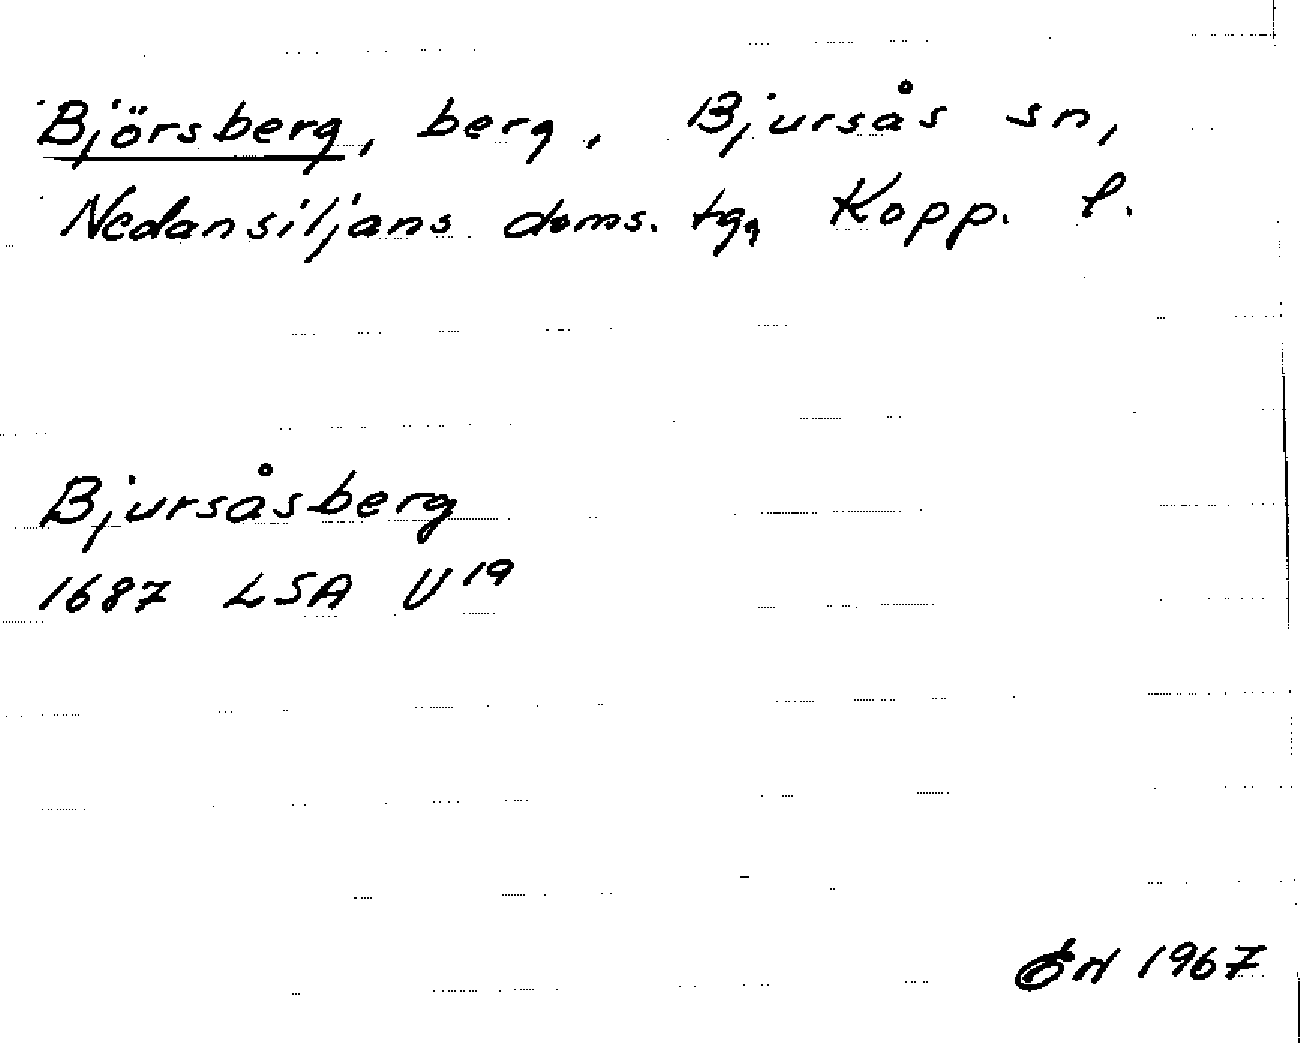 Björsberg, berg. Bjursås sn,
Nedansiljans doms. tg, Kopp. l.
Bjursåsberg
1687 LSA U19
1967